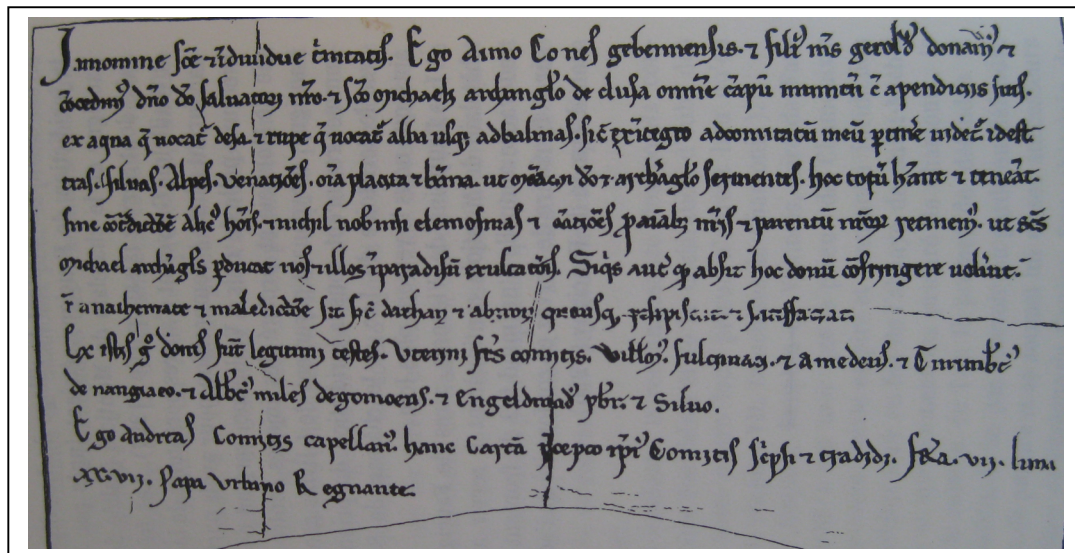 Jn nomine sc̄e & īdiuidue t̄nitatis. Ego Aimo Comes gebennensis. & fili᷒ m̄s gerold᷒ donam᷒ &
c̄cedim᷒ dn̄o dō saluatori nr̄o. & sc̄o michaeli archanglo de clusa omnē cāpū munitū c̄ apendiciis suis.
ex aqua q̄ uocat̄ desa. & rupe q̄ uocat̄ alba usq; ad balmas. sic̄ exītegro ad comitatū meū ptinē uidet̄ id est
t̄ras. siluas. Alpes. venatiōes. oīa placita & bāna. ut monachi dō & archāglo seruientes. hoc totū habeant & teneāt.
sine c̄tdictiōe alic᷒ hoīs. & nichil nob nisi elemosinas & ōratiōes p aīab; nr̄is & parentū nr̄oꝝ retinem᷒. ut sc̄s
michael archāgls pducat nos & illos ī paradisū exultatōis. Siq̄s aut̄ qd absit hoc donū c̄fringere uoluerit.
s̄ anathemate & maledictiōe sit sic̄ dathan & abiron quousq; resipiscat & satisfaciat.
Ex istis g̊ donis sūt legitimi testes. Vterini frs comitis. Willm᷒. fulciniaci. & Amedeus. & Turumb̄t᷒
de nangiaco. & Alb̄t᷒ miles de gomoens. & Engeldrand᷒ pb̄r. & Siluo.
Ego Andreas Comitis capellan᷒ hanc Cartā p̄cepto ip̄i᷒ Comitis sc̄psi & tradidi. feria. vii. luna
xx. vii. Papa Vrbano Regnante.